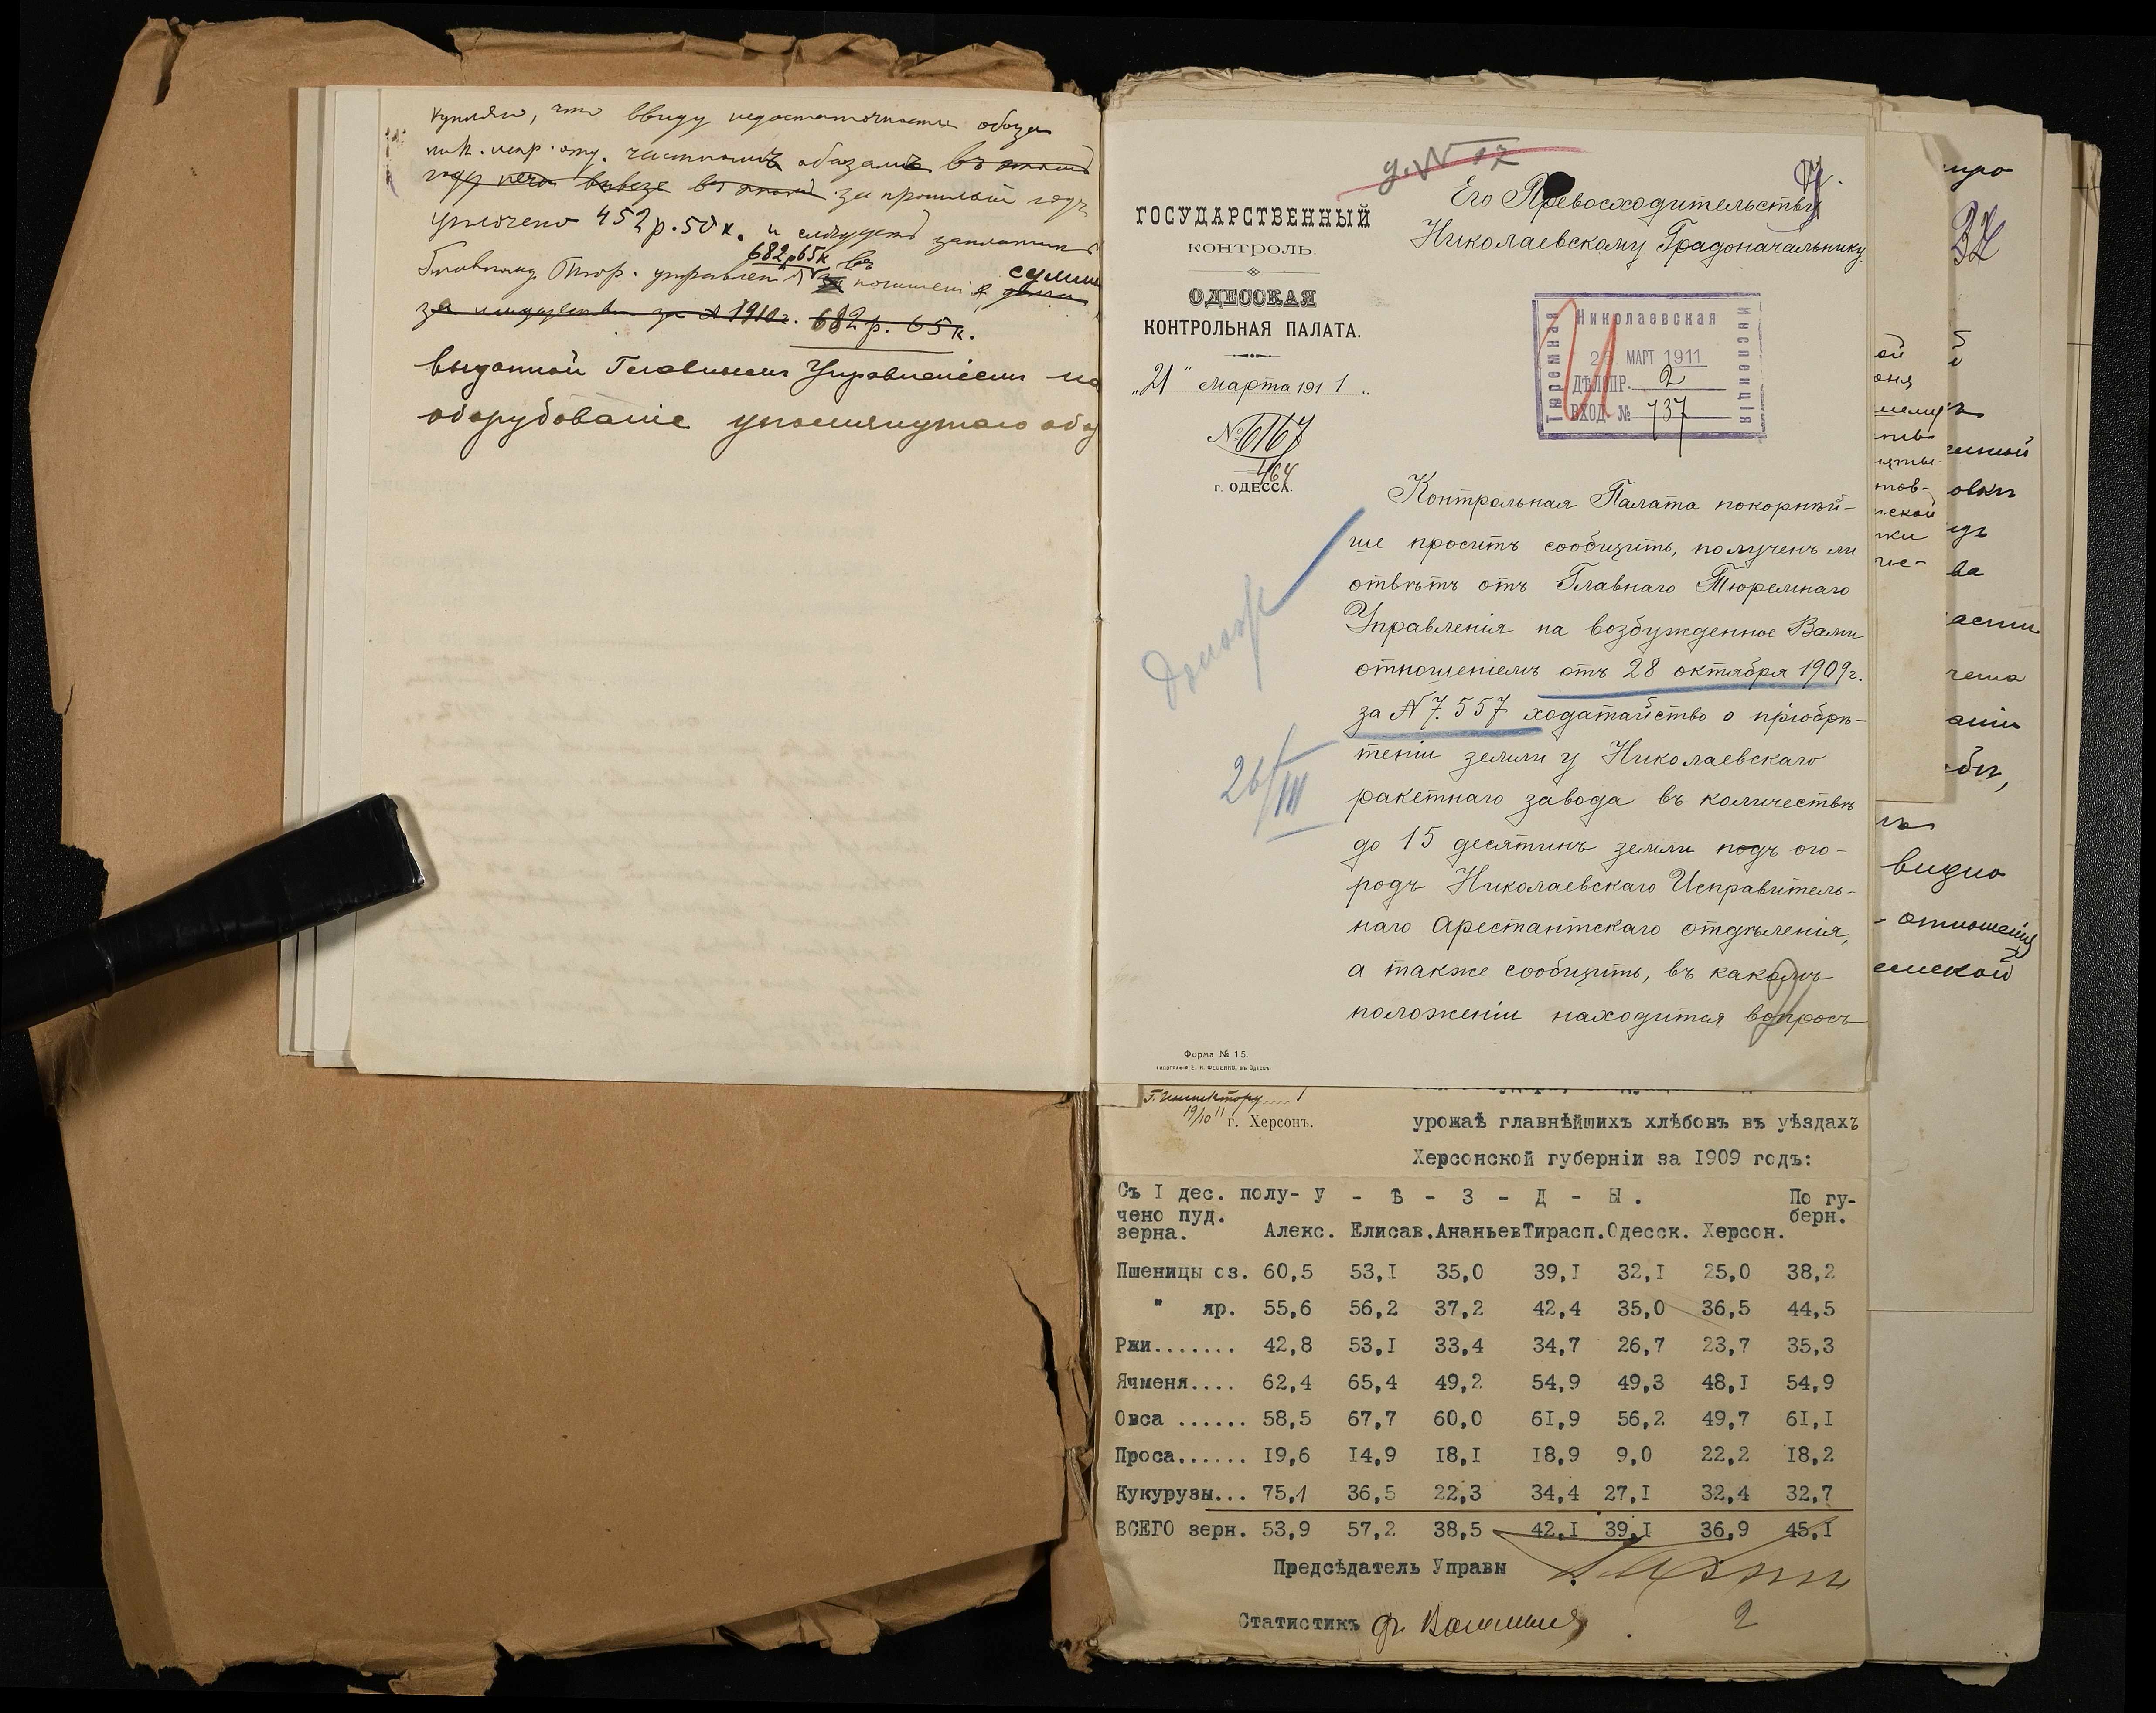 что ввиду недостаточности обоза
частнымъ обозамъ
за прошлый годъ
уплочено 452 р. 50 к. и следуетъ
682 р 65 к въ
управленію
за 1910 г. 682 р. 65 к.
выданной Главнымъ Управленіемъ на
оборудованіе упомянутаго
ГОСУДАРСТВЕННЫЙ
КОНТРОЛЬ.
ОДЕССКАЯ
КОНТРОЛЬНАЯ ПАЛАТА.
„21" Марта 1911 г.
№ 6167
464
г. ОДЕССА.
Его Превосходительству
Николаевскому Градоначальнику.
Николаевская
Тюремная
Инспекція
МАРТ 1911
ДѢЛОПР. 2
ВХОД № 737
Контрольная Палата покорнѣй-
ше проситъ сообщить, полученъ ли
отвѣтъ отъ Главнаго Тюремнаго
Управленія на возбужденное Вами
отношеніемъ отъ 28 октября 1909 г.
за № 7.557 ходатайство о пріобрѣ-
теніи земли у Николаевскаго
ракетнаго завода въ количествѣ
до 15 десятинъ земли подъ ого-
родъ Николаевскаго Исправитель-
наго Арестантскаго отдѣленія,
а также сообщить, въ какомъ
положеніи находится вопросъ
26/III
Форма № 15.
Г. Инспектору
19/10 11
г. Херсонъ.
урожаѣ главнѣйшихъ хлѣбовъ въ уѣздахъ
Херсонской губерніи за 1909 годъ:
Съ I дес. полу- У - Ѣ - З - Д - Ы . По гу-
чено пуд. берн.
зерна. Алекс. Елисав. Ананьев Тирасп. Одесск. Херсон.
Пшеницы оз. 60,5 53,I 35,0 39,I 32,I 25,0 38,2
" яр. 55,6 56,2 37,2 42,4 35,0 36,5 44,5
Ржи....... 42,8 53,I 33,4 34,7 26,7 23,7 35,3
Ячменя.... 62,4 65,4 49,2 54,9 49,3 48,I 54,9
Овса ...... 58,5 67,7 60,0 6I,9 56,2 49,7 6I,I
Проса...... I9,6 I4,9 I8,I I8,9 9,0 22,2 I8,2
Кукурузы... 75,1 36,5 22,3 34,4 27,I 32,4 32,7
ВСЕГО зерн. 53,9 57,2 38,5 42,I 39,I 36,9 45,I
Предсѣдатель Управы
Статистикъ
2
видно
отношенія